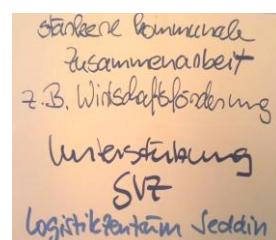 stärkere kommunale
Zusammenarbeit
z.B. Wirtschaftsförderung
Unterstützung
SVZ
Logistikzentrum Seddin